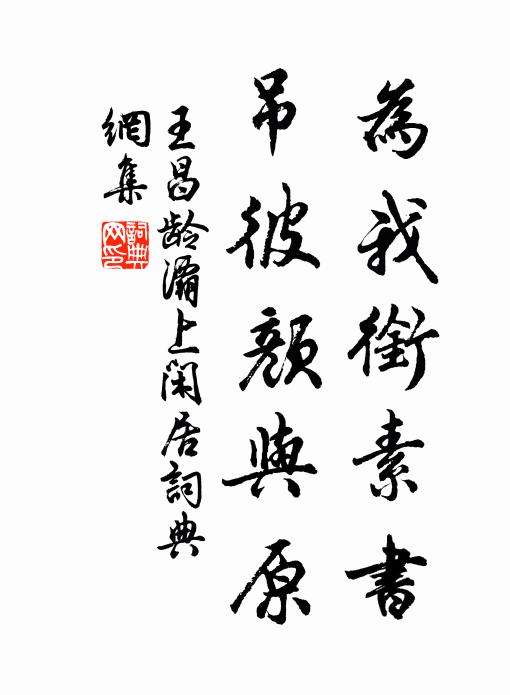 為我銜素書
吊彼顏與原
王昌齡灞上閑居詞典
網集
詞典
网印